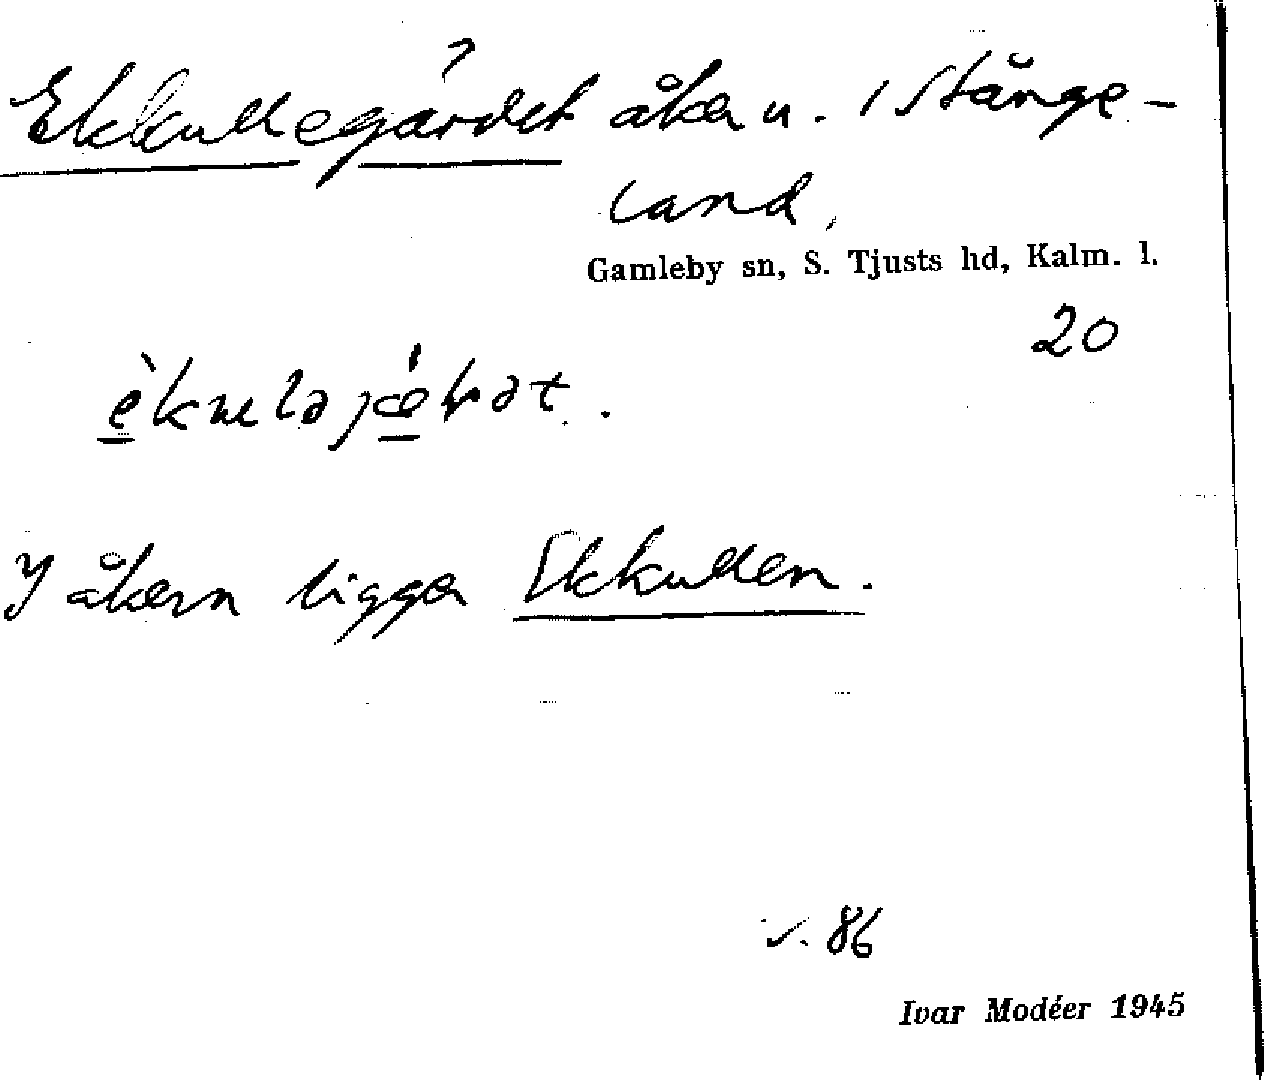 Ekkullegärdet åker u. Stånge-
land,
Gamleby sn, S. Tjusts hd, Kalm. l.
20
I åkern ligger Ekkullen.
86
Ivar Modéer 1945